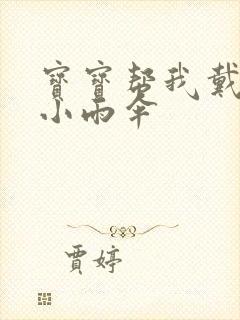 寶寶幫我戴
小雨伞
賈婷